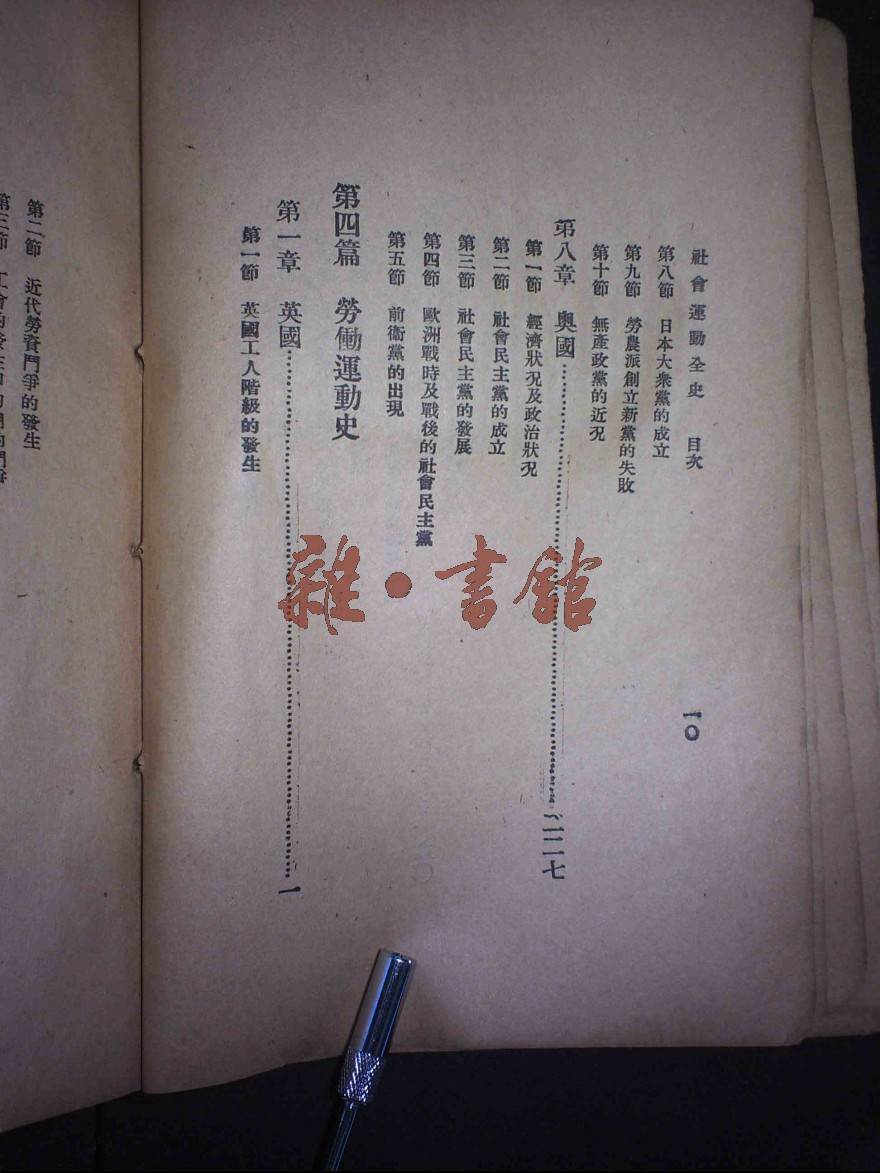 社會運動全史　目次
一〇
第八節　日本大衆黨的成立
第九節　勞農派創立新黨的失敗
第十節　無產政黨的近况
第八章　奧國……二二七
第一節　經濟狀况及政治狀况
第二節　社會民主黨的成立
第三節　社會民主黨的發展
第四節　歐洲戰時及戰後的社會民主黨
第五節　前衞黨的出現
第四篇　勞働運動史
第一章　英國……一
第一節　英國工人階級的發生
第二節　近代勞資鬥爭的發生
第三節　工會的發生
雜・書館